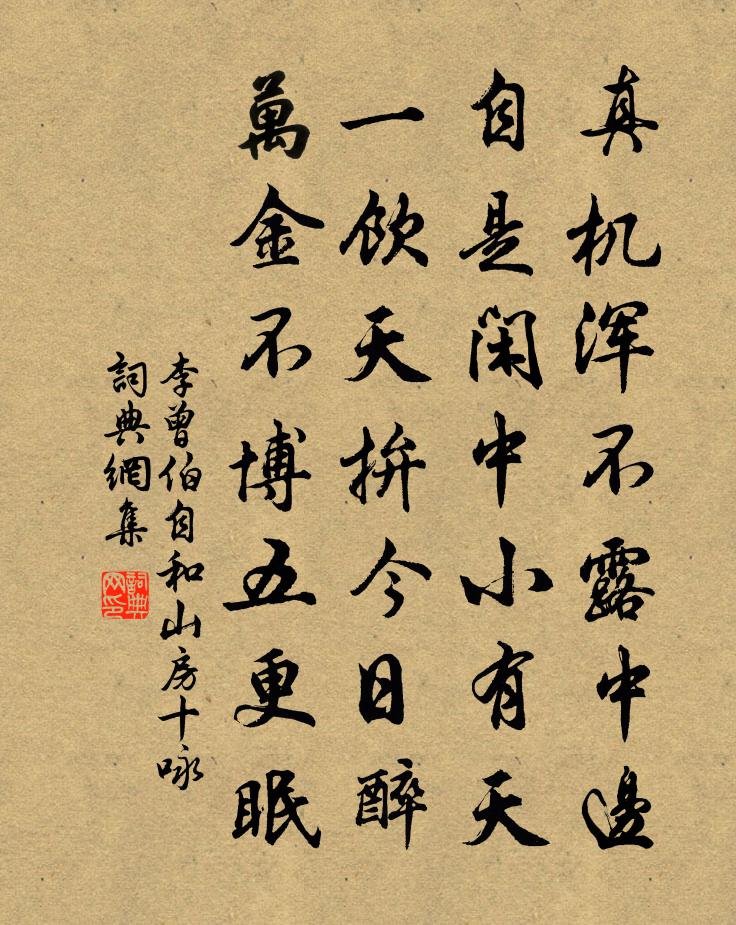 真机浑不露中邊
自是闲中小有天
一飲天拚今日醉
萬金不博五更眠
李曾伯自和山房十咏
詞典網集
詞典网印